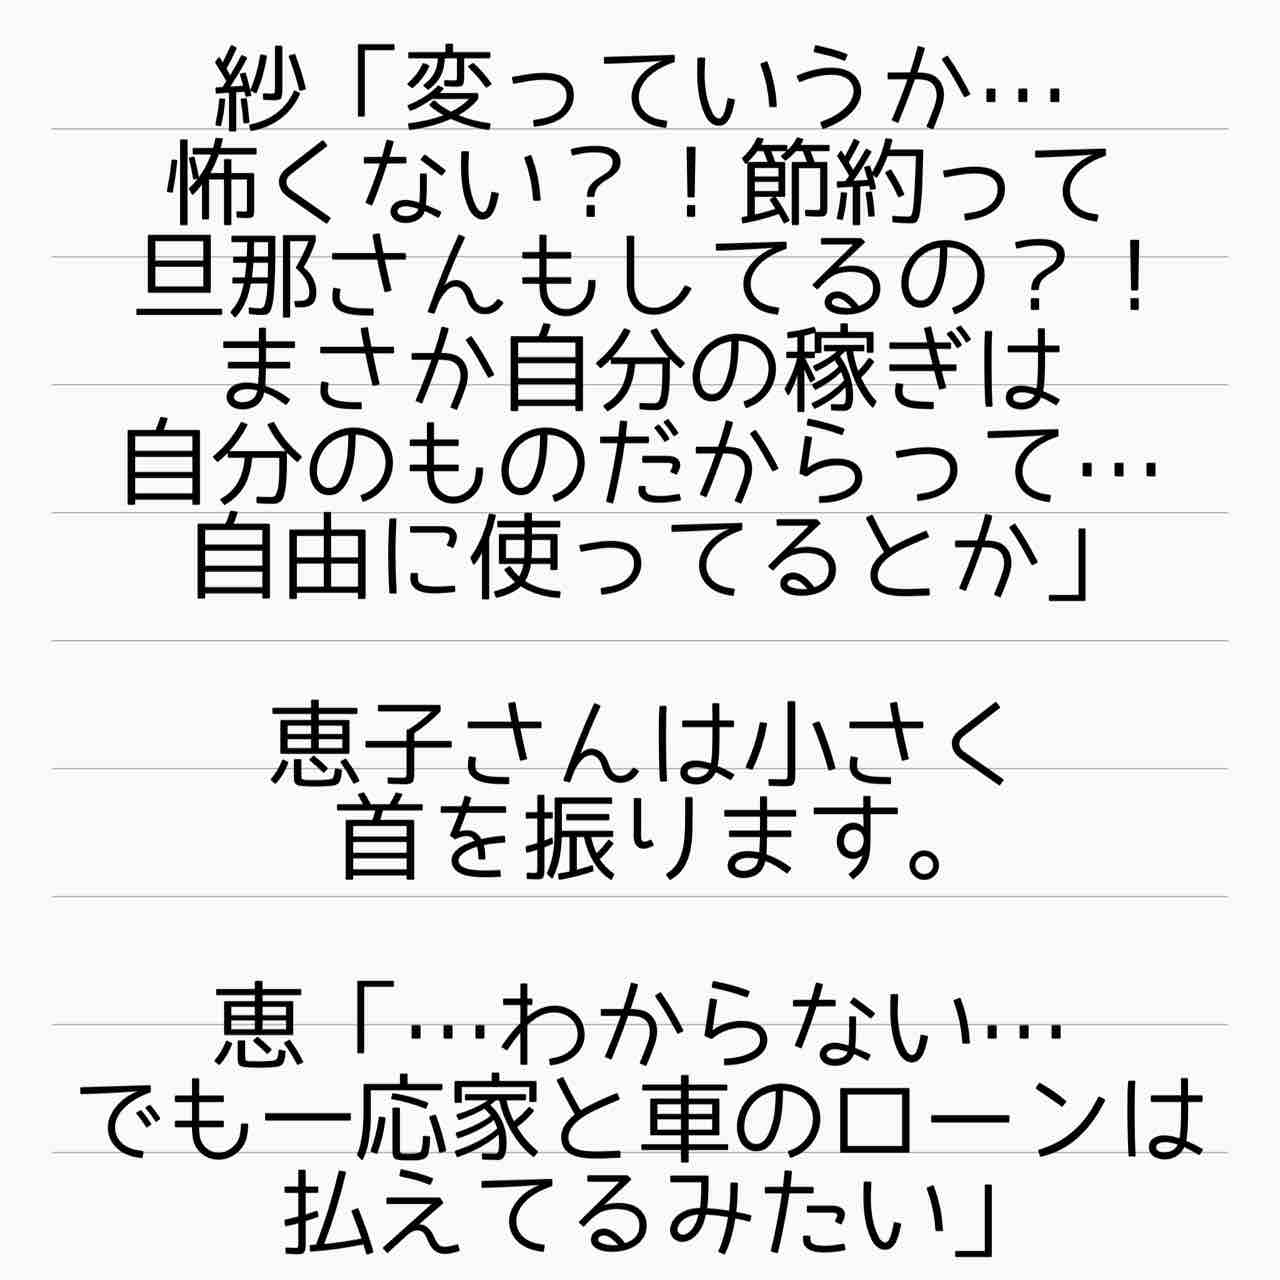 紗「変っていうか…
怖くない？！節約って
旦那さんもしてるの？！
まさか自分の稼ぎは
自分のものだからって…
自由に使ってるとか」
恵子さんは小さく
首を振ります。
恵「…わからない…
でも一応家と車のローンは
払えてるみたい」